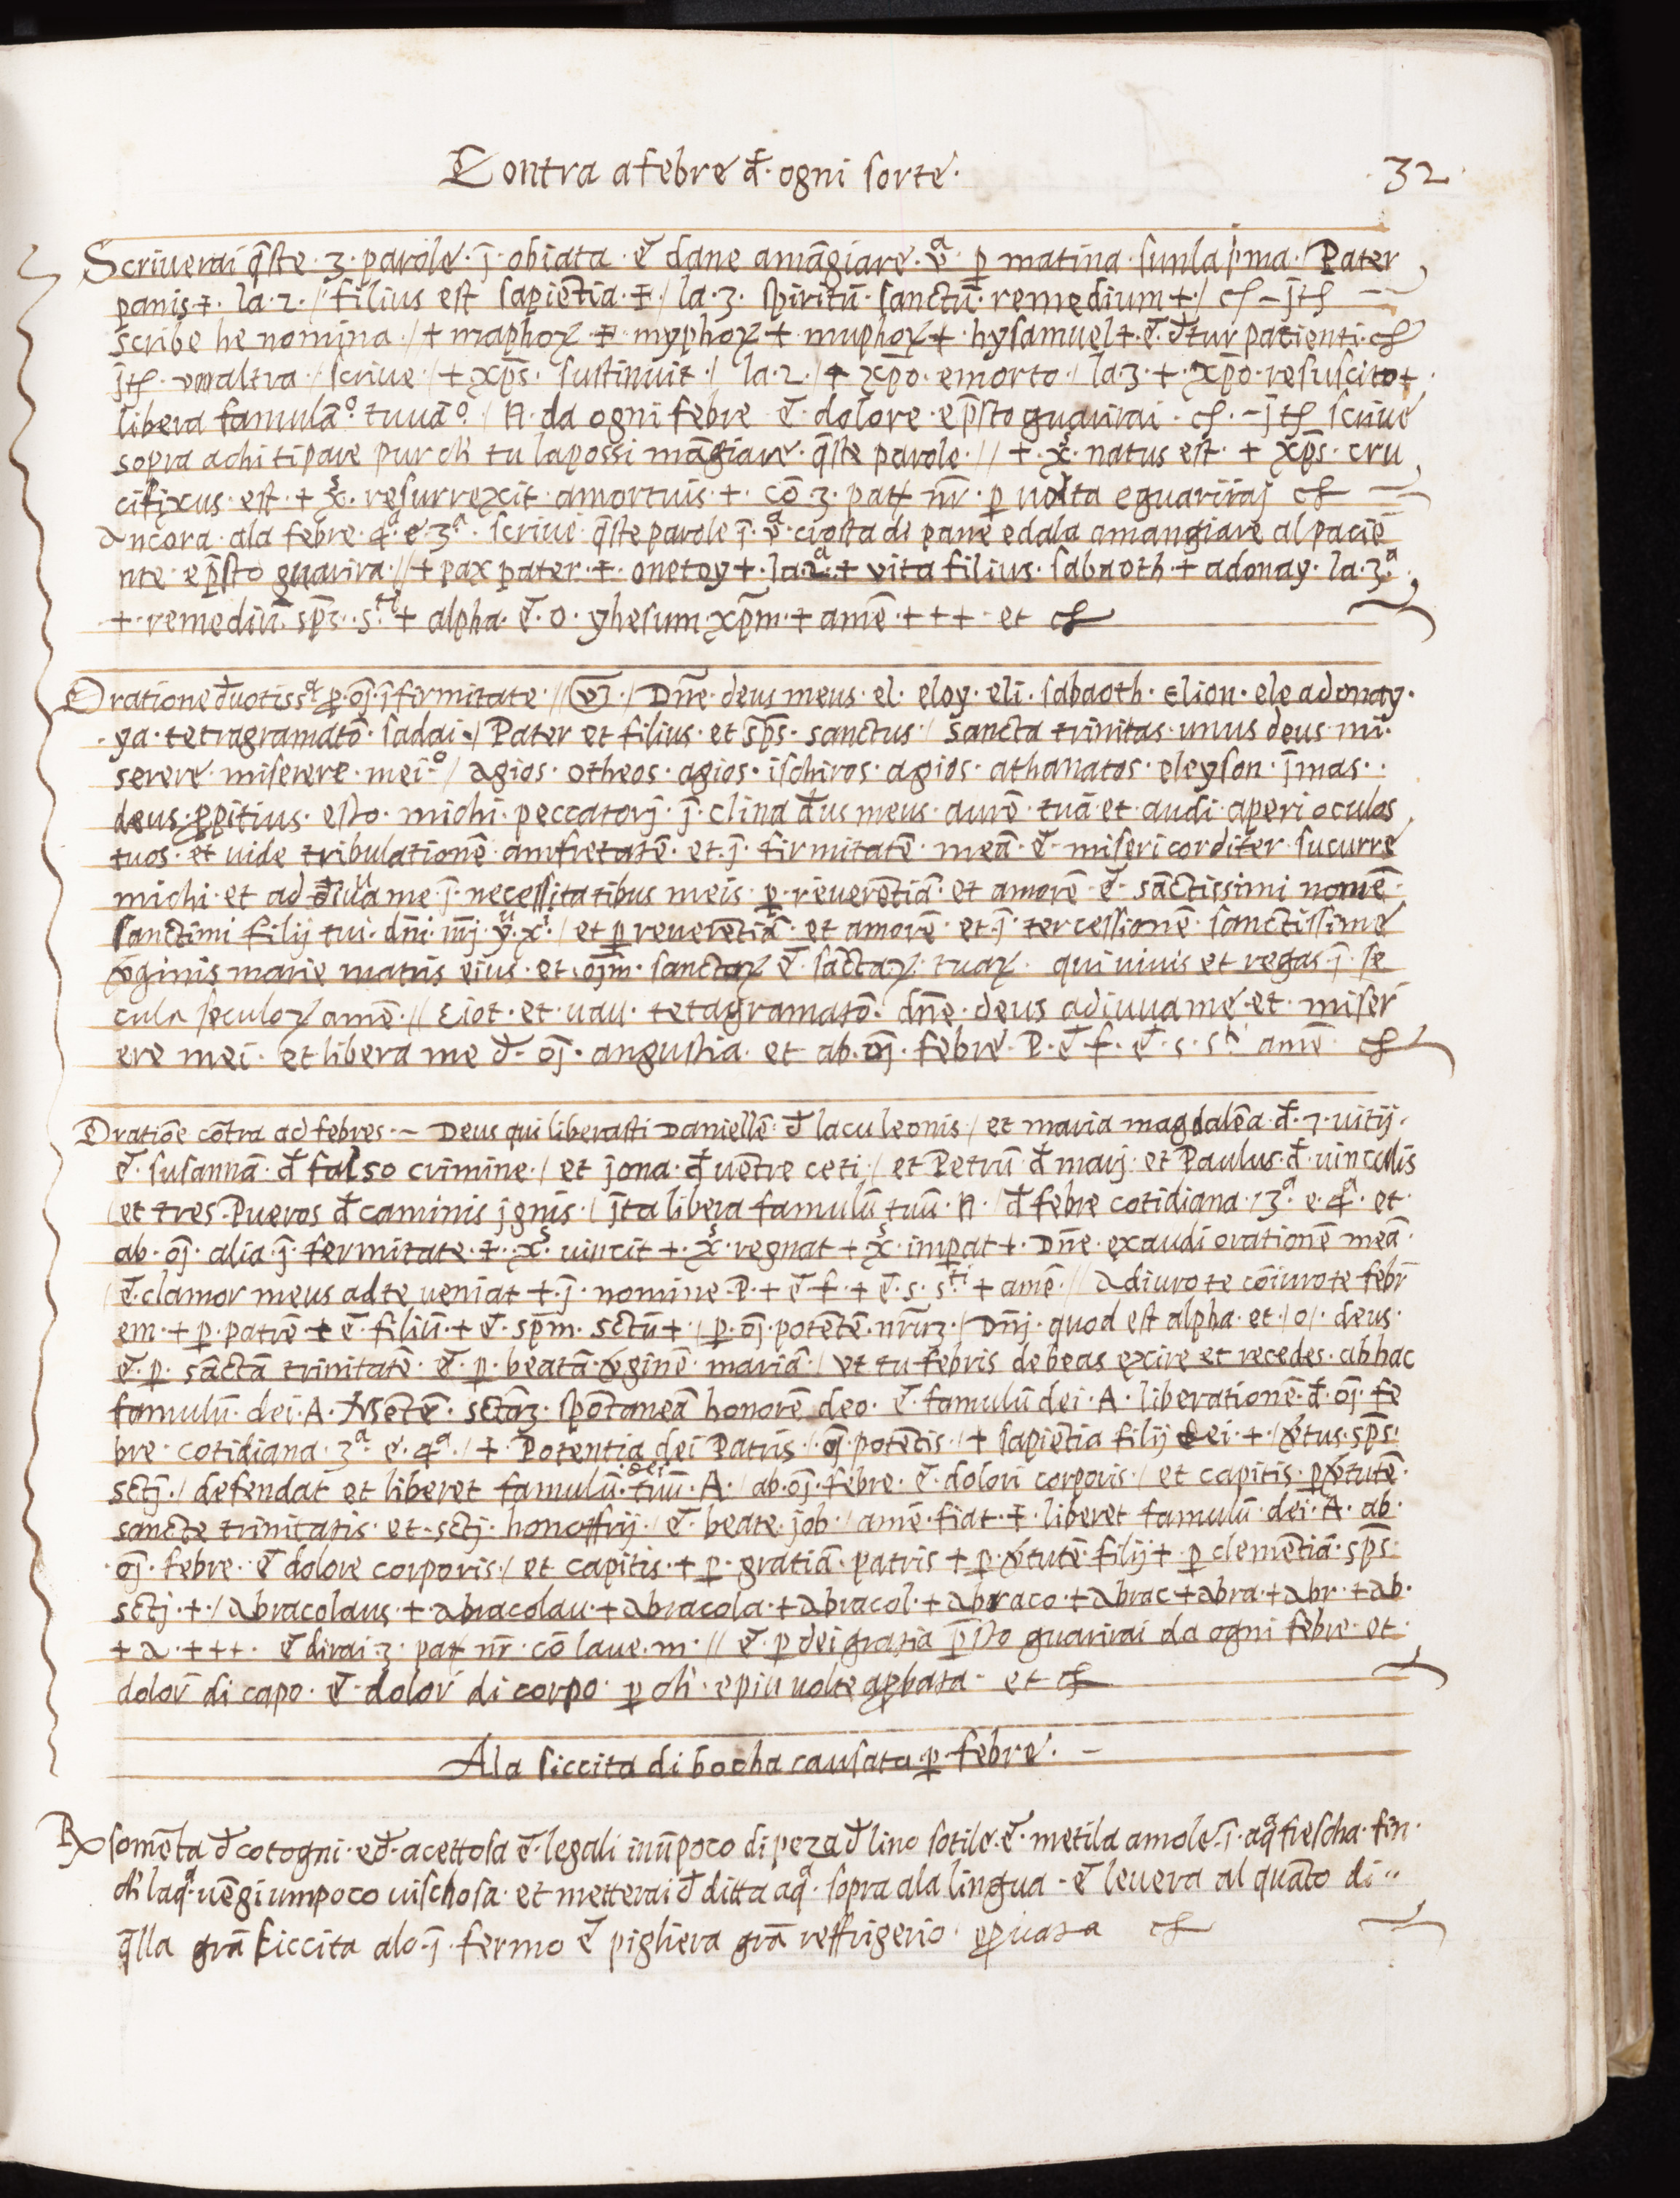 Contra a febre đ· ogni sorte·
32
Scriuerai q̄ste·3·parole·j̄·obiata·ē dane amāgiare·v̊ᵃ·p̱ matina·sunla p̱ma·/Pater
panis+·la·2·/filius est sapiētia·+·/la·3·spiritū·sanctū·remedium+·/
scribe he nomina·/+maphoꝝ+myphoꝝ+muphoꝝ+·hysamuel+·ē·đtur patienti·
altra·/scriue·/+xp̄s·sustinuit·/la·2·/+xp̄o·emorto·/la·3·+·xp̄o·resuscito+
libera famulāº·tuuāº·/N·da ogni febre ē·dolore·ep̄sto guarirai·scriue
sopra achi ti pare pur ch̄ tu la possi māgiare·q̄ste parole·//+·x̊ˢ·natus est·+xp̄s·cru
cifixus·est·+x̊ˢ·resurrexit·amortuis·+·cō·3·patr̄ nr̄·p̱ uolta eguariraj
Ancora·ala febre·4ᵃ·e·3ᵃ·scriue q̄ste parole j̄·vᵃ·crosta di pane edala amangiare al paciē
nte·ep̄sto guarira·//+pax pater·+·onetoy+·la·2ᵃ·+vita filius·sabaoth·+adonay·la·3ᵃ
+·remediū·sp̄s·sᵗⁱ+alpha·ē·o·yhesum·xp̄m·+amē·+++·et
Oratione đuotissᵃ p̱·oj̄·j̄firmitate·//·/Dn̄e·deus meus·el·eloy·eli·sabaoth·Elion·ele adonay·
ya·tetragramatō·sadai·/Pater et filius·et sp̄s·sanctus·/sancta trinitas·unus deus mi·
serere·miserere·mei·/agios·otheos·agios·ischiros·agios·athanatos·eleyson·j̄mas·
deus·p̱pitius·esto·michi·peccatorj·j̄·clina đus meus·aurē·tuā·et·audi·aperi oculos
tuos·et uide tribulationē·amfretatē·et·j̄·firmitatē·meā·ē·misericorditer·sucurre
michi·et adđiuua me·j̄·necessitatibus meis·p̱·reuerētiā·et amorē·ē·sāctissimi nomē·
sanctimi filij tui·dn̄i·n̄rj·ẙ·x̊ⁱ·/et p̱ reuerētiā·et amorē·et·j̄·tercessionē·sanctissime
v̄ginis marie matris eius·et·oj̄m·sanctoꝝ ē·sāctaꝝ·tuaꝝ·qui uiuis et regas·j̄·se
cula seculoꝝ amē·//Eiot·et·uau·tetagramatō·dn̄e·deus adiuua me·et·miser
ere mei·et libera me đ·oj̄·angustia·et ab·oj̄·febre·P·ē·f·ē·s·sᵗⁱ amē
Oratiōe cōtra ad febres·–Deus qui liberasti Daniellē·đ lacu leonis/et maria magdalēa·đ·7·uitij·
ē·susannā·đ falso crimine·/et jona·đ uētre ceti·/et Petrū·đ marj·et Paulus·đ·uinculis
/et tres·Pueros đ caminis jgnis·/jta libera famulū tuū·N·/đ febre cotidiana·/3ᵃ·e·4ᵃ·et·
ab·oj̄·alia·j̄·fermitate·+·x̊ˢ·uincit+·x̊ˢ·regnat+x̊ˢ·imp̱at+·Dn̄e·exaudi orationē meā·
/ē·clamor meus ad te ueniat+·j̄·nomine·P·+ē·f·+ē·s·sᵗⁱ+amē·//Adiuro te cōiuro te febr̄
em·+p̱·patrē+ē·filiū·+ē·sp̄m·sctū+·/p̱·oj̄·potētē·/Dn̄j·quod est alpha·et/o/·deus·
ē·p̱·sāctā trinitatē·ē·p̱·beatā·v̄ginē·mariā·/vt tu febris debeas exire et recedes·ab hac
famulū·dei·A·spōtaneā honorē deo·ē·famulū dei·A·liberationē·đ·oj̄·fe
bre·cotidiana·3ᵃ·e·4ᵃ·/+Potentia dei Patris·/oj̄·potētis·/+sapiētia filij dei·+·/v̄tus·sp̄s·
sctj·/defendat et liberet famulū·dei tuū·A·/ab·oj̄·febre·ē·dolori corporis·/et capitis·p̱ v̄tutē·
sancte trinitatis·et·sctj·honoffrij·/ē·beate·job·/amē·fiat·+·liberet famulū·dei·A·ab·
oj̄·febre·ē dolore corporis·/et capitis·+p̱·gratiā·patris+p̱·v̄tutē·filij+·p̱ clemētiā·sp̄s·
sctj·+·/Abracolaus·+abracolau·+abracola·+abracol·+abraco·+abrac+abra·+abr·+ab·
+a·+++·ē dirai·3·patr̄ nr̄·cō laue·m·//ē·p̱ dei gratia p̄sto guarirai da ogni febre·et·
dolor̄ di capo·ē·dolor̄ di corpo·p̱ ch̄·e piu uolte ap̱bata·et
Ala siccita di bocha causata·p̱·febre·–
℞ somēta đ cotogni·eđ·acettosa ē·legali inūpoco di peza đ lino sotile·ē·metila amole·j̄·aqᵃ frescha·fin·
ch̄ laqᵃ·uēgi umpoco uischosa·et metterai đ ditta aqᵃ·sopra ala lingua·ē leuera al quāto di··
q̄lla grā siccita alo·j̄·fermo ē pighera grā reffrigerio·